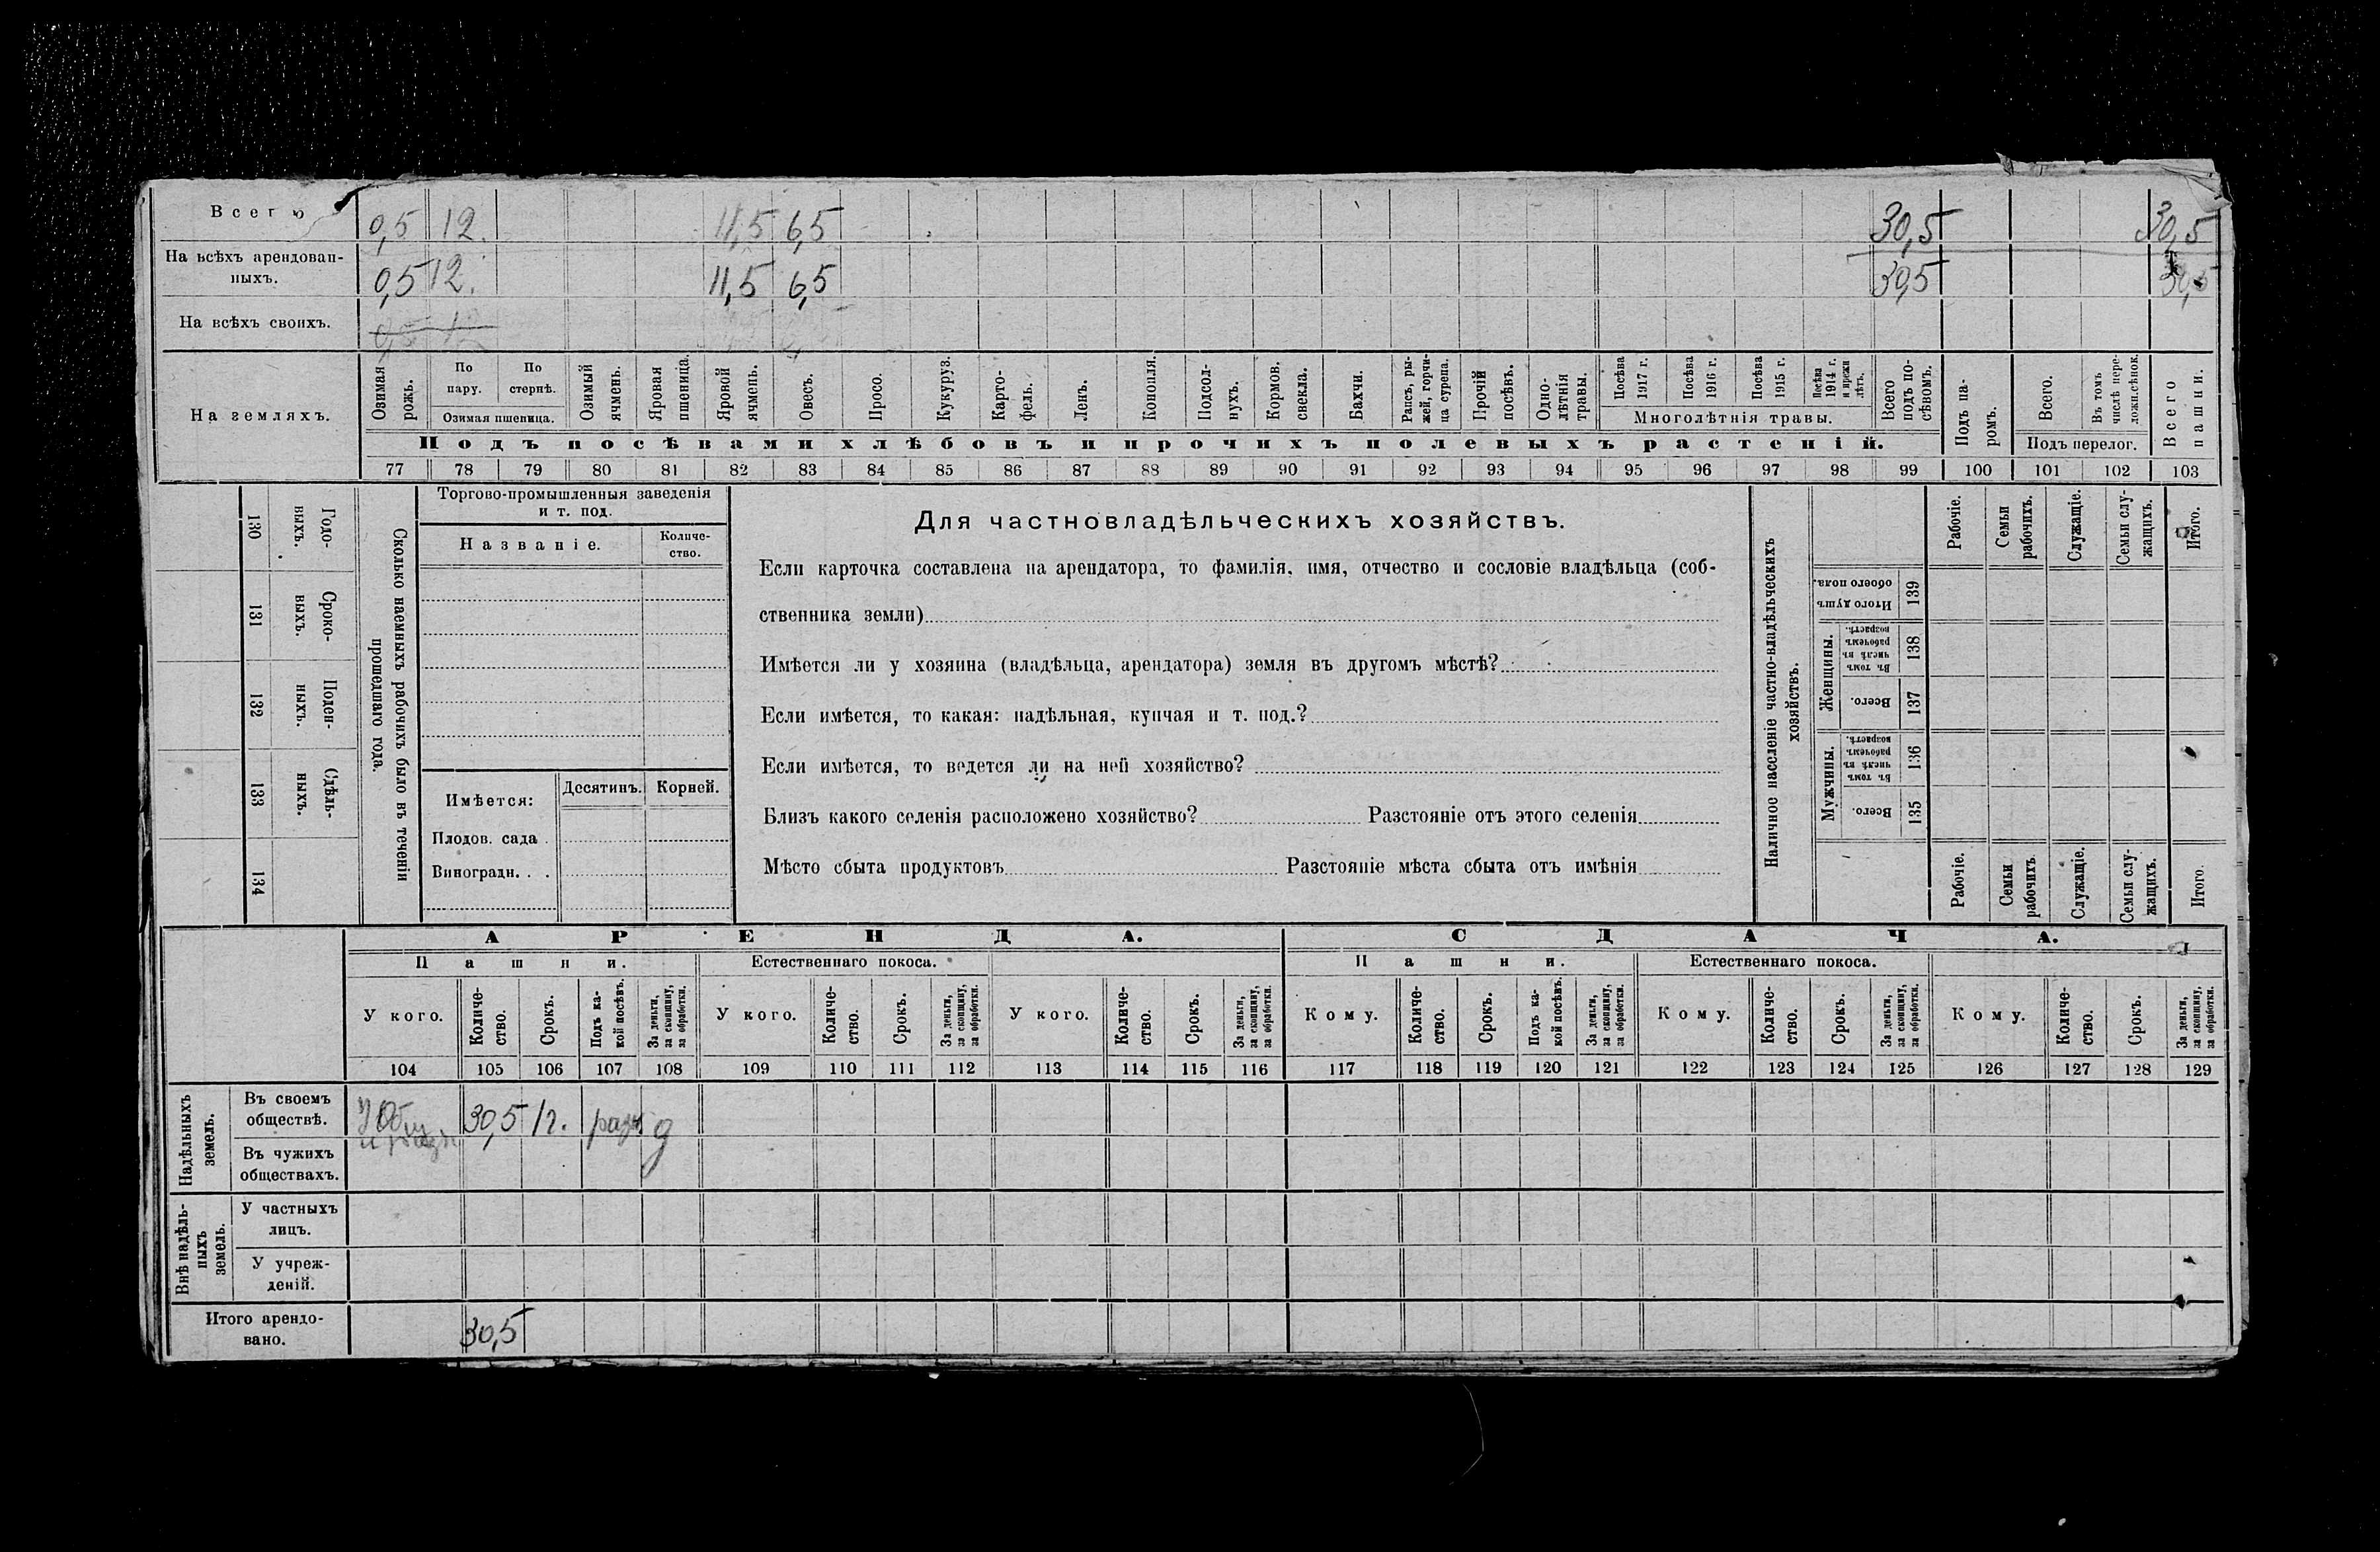 Всего 0,5 12. 11,5 6,5 30,5 30,5
На всѣхъ арендован-
ныхъ. 0,5 12. 11,5 6,5 30,5 30,5
На всѣхъ своихъ. 0,5 12
На земляхъ.
Озимая рожь.
По пару.
По стернѣ.
Озимая пшеница.
Озимый ячмень.
Яровая пшеница.
Яровой ячмень.
Овесъ.
Просо.
Кукуруз.
Карто-
фель.
Ленъ.
Конопля.
Подсол-
нухъ.
Кормов.
свекла.
Бахчи.
Рапсъ, ры-
жей, горчи-
ца сурепа.
Прочій
посѣвъ.
Одно-
лѣтнія
травы.
Посѣва 1917 г.
Посѣва 1916 г.
Посѣва 1915 г.
Посѣва 1914 г. и прежн лѣтъ.
Многолѣтнія травы.
Всего
подъ по-
сѣвомъ.
Подъ па-
ромъ.
Всего.
Въ томъ
числѣ пере-
ложн.сѣнок.
Подъ перелог.
Всего
пашни.
Подъ посѣвами хлѣбовъ и прочихъ полевыхъ растеній.
77 78 79 80 81 82 83 84 85 86 87 88 89 90 91 92 93 94 95 96 97 98 99 100 101 102 103
Сколько наемныхъ рабочихъ было въ теченіи
прошедшаго года.
Годо-
выхъ.
130
Сроко-
выхъ.
131
Поден-
ныхъ.
132
Сдѣль-
ныхъ.
133
134
Торгово-промышленныя заведенія
и т. под.
Названіе.
Количе-
ство.
Имѣется:
Десятинъ.
Корней.
Плодов. сада .
Виноградн. . .
Для частновладѣльческихъ хозяйствъ.
Если карточка составлена на арендатора, то фамилія, имя, отчество и сословіе владѣльца (соб-
ственника земли)
Имѣется ли у хозяина (владѣльца, арендатора) земля въ другомъ мѣстѣ?
Если имѣется, то какая: надѣльная, купчая и т. под.?
Если имѣется, то ведется ли на ней хозяйство?
Близъ какого селенія расположено хозяйство? Разстояніе отъ этого селенія
Мѣсто сбыта продуктовъ Разстояніе мѣста сбыта отъ имѣнія
Наличное населеніе частно-владѣльческихъ
хозяйствъ.
Рабочіе.
Семьи
рабочихъ.
Служащіе.
Семьи слу-
жащихъ.
Итого.
Итого душъ
обоего пола.
139
Женщины.
Въ томъ
числѣ въ
рабочемъ
возрастѣ.
138
Всего.
137
Мужчины.
Въ томъ
числѣ въ
рабочемъ
возрастѣ.
136
Всего.
135
Рабочіе.
Семьи
рабочихъ.
Служащіе.
Семьи слу-
жащихъ.
Итого.
АРЕНДА. СДАЧА.
Пашни. Естественнаго покоса. Пашни. Естественнаго покоса.
У кого.
Количе-
ство.
Срокъ.
Подъ ка-
кой посѣвъ.
За деньги,
за скопщину,
за обработки.
У кого.
Количе-
ство.
Срокъ.
За деньги,
за скопщину,
за обработки.
У кого.
Количе-
ство.
Срокъ.
За деньги,
за скопщину,
за обработки.
Кому.
Количе-
ство.
Срокъ.
Подъ ка-
кой посѣвъ.
За деньги,
за скопщину,
за обработки.
Кому.
Количе-
ство.
Срокъ.
За деньги,
за скопщину,
за обработки.
Кому.
Количе-
ство.
Срокъ.
За деньги,
за скопщину,
за обработки.
104 105 106 107 108 109 110 111 112 113 114 115 116 117 118 119 120 121 122 123 124 125 126 127 128 129
Надѣльныхъ
земель.
Въ своемъ
обществѣ.
У Общ 30,5 1г. разн д
Въ чужихъ
обществахъ.
Внѣ надѣль-
ныхъ
земель.
У частныхъ
лицъ.
У учреж-
деній.
Итого арендо-
вано. 30,5